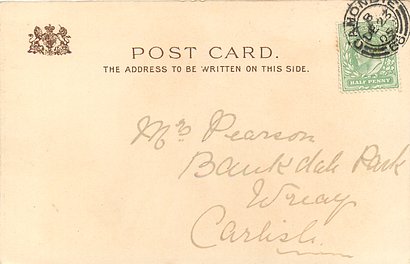 POST CARD.
THE ADDRESS TO BE WRITTEN ON THIS SIDE.
HALF PENNY
Mrs Pearson
Bankdale Park
Wreay
Carlisle